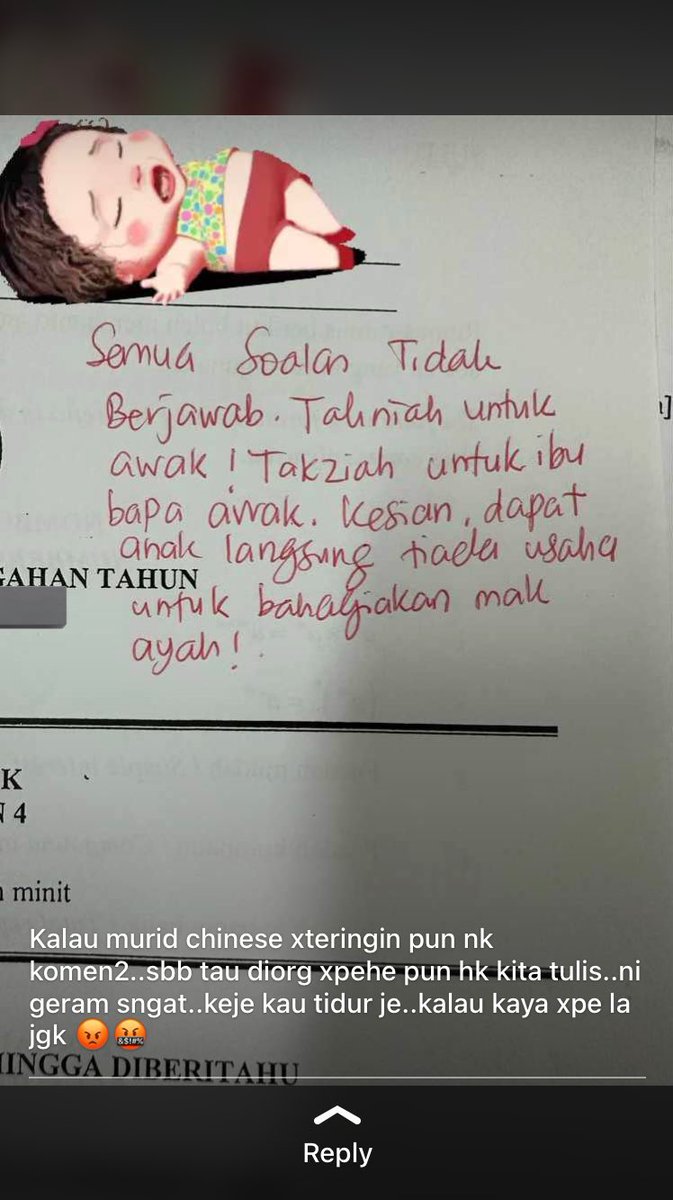 Semua Soalan Tidak
Berjawab. Tahniah untuk
awak! Takziah untuk ibu
bapa awak. Kesian, dapat
anak langsung tiada usaha
GAHAN TAHUN
untuk bahagiakan mak
ayah!.
K
N 4
n minit
Kalau murid chinese xteringin pun nk
komen2..sbb tau diorg xpehe pun hk kita tulis..ni
geram sngat..keje kau tidur je..kalau kaya xpe la
jgk 😡🤬
HINGGA DIBERITAHU
Reply